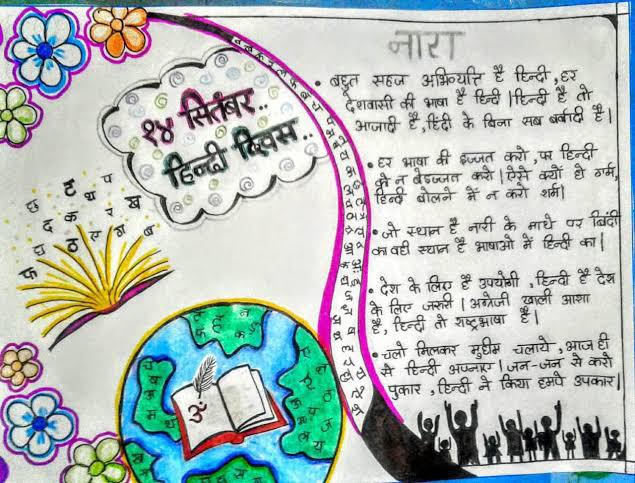 १४ सितंबर..
हिन्दी दिवस..
नारा
• बहुत सहज अभिव्यक्ति है हिन्दी, हर
देशवासी की भाषा है हिन्दी। हिन्दी है तो
आजादी है, हिंदी के बिना सब बर्बादी है।
• हर भाषा की इज्जत करो, पर हिन्दी
को न बेइज्जत करो। ऐसे क्यों हो गर्म,
हिन्दी बोलने में न करो शर्म।
• जो स्थान है नारी के माथे पर बिंदी
का वही स्थान है भाषाओ में हिन्दी का।
• देश के लिए है उपयोगी, हिन्दी है देश
के लिए जरुरी। अंग्रेजी खाली आशा
है, हिन्दी तो राष्ट्रभाषा है।
• चलो मिलकर मुहीम चलाये, आज ही
से हिन्दी अपनाए। जन-जन से करो
पुकार, हिन्दी ने किया हमपे उपकार।
ॐ